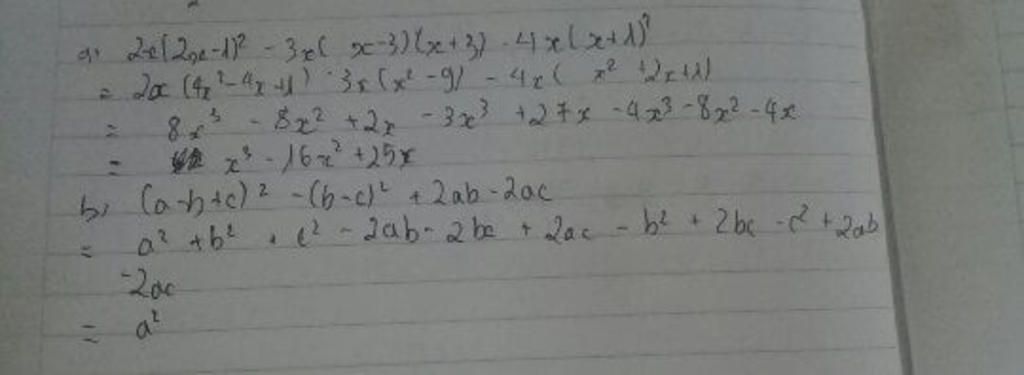 a, 2x(2x-1)² - 3x(x-3)(x+3) - 4x(x+1)²
= 2x(4x²-4x+1) - 3x(x²-9) - 4x(x²+2x+1)
= 8x³ - 8x² + 2x - 3x³ + 27x - 4x³ - 8x² - 4x
= x³ - 16x² + 25x
b, (a-b+c)² - (b-c)² + 2ab - 2ac
= a² + b² + c² - 2ab - 2bc + 2ac - b² + 2bc - c² + 2ab
- 2ac
= a²